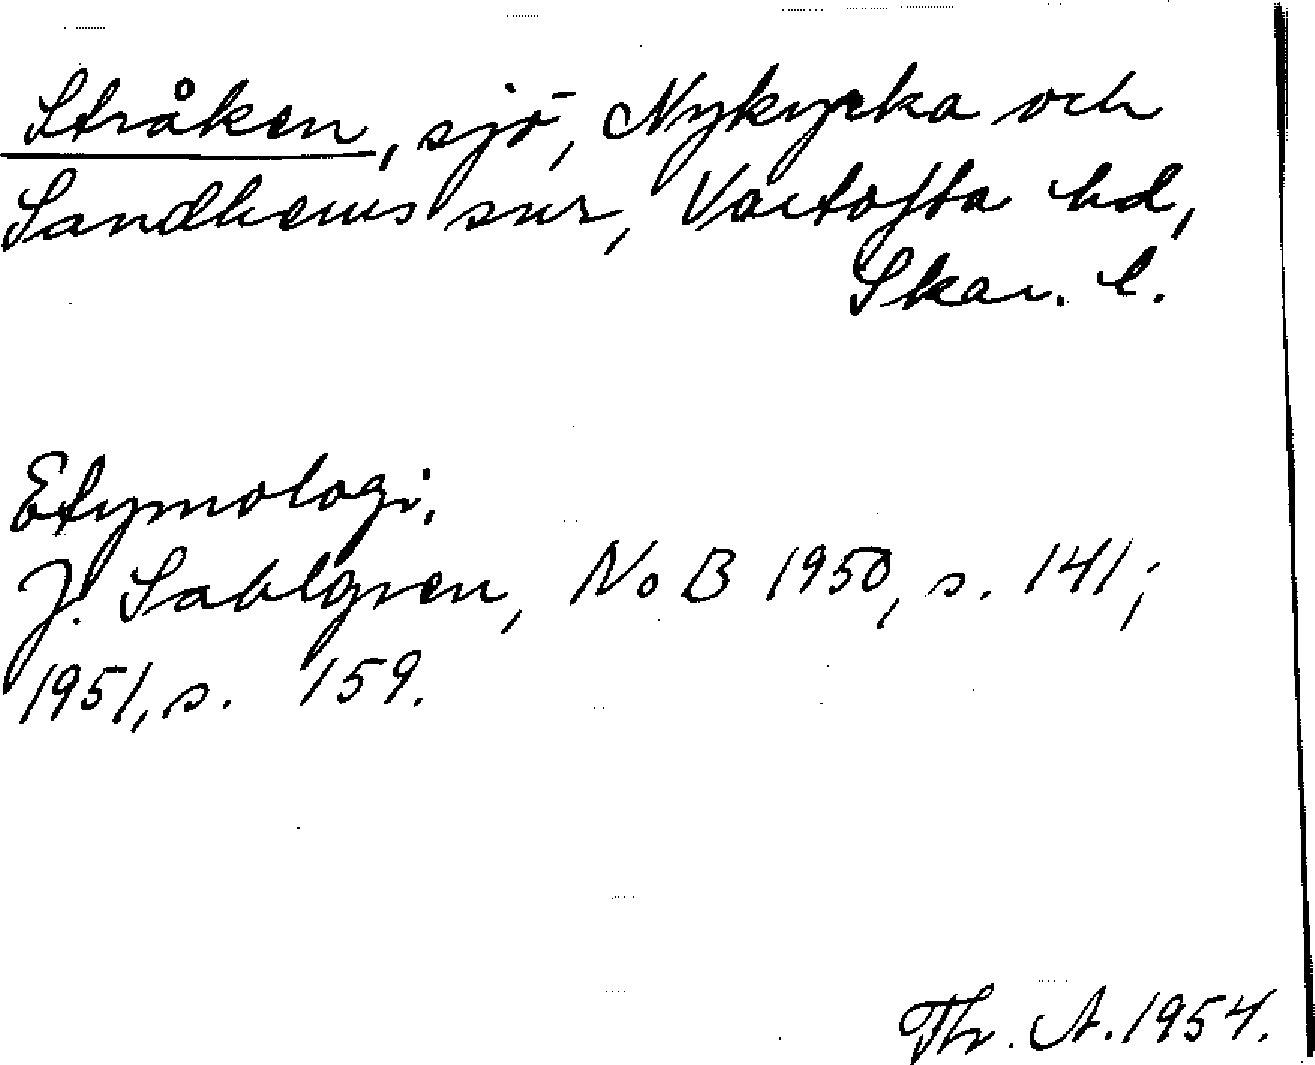 Stråken, sjö, Nykyrka och
Sandhems snr, Vartofta hd,
Skar. l.
Etymologi.
J. Sahlgren, NoB 1950, s. 141;
1951, s. 159.
Th. A. 1954.